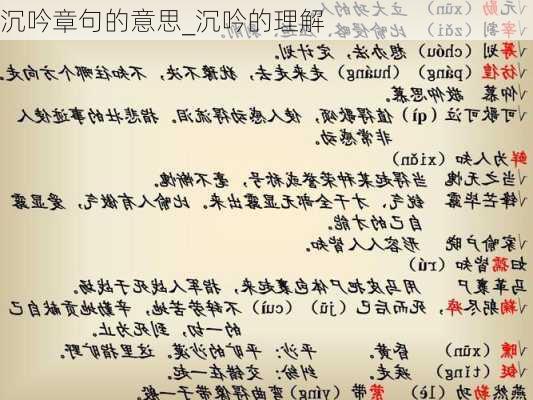 沉吟章句的意思_沉吟的理解
元勋（xūn） 立大功的人
宰割（zǎi）
√筹划（chóu）想办法，定计划。
√彷徨（páng）（huáng）走来走去，犹豫不决，不知往哪个方向走。
√仰慕 敬仰思慕。
√可歌可泣（qì）值得歌颂，使人感动得流泪。指悲壮的事迹使人
非常感动。
鲜为人知（xiǎn）
√当之无愧 当得起某种荣誉或称号，毫不惭愧。
√锋芒毕露 锐气、才干全部显露出来。比喻人有傲气，爱显露
自己的才能。
√家喻户晓 形容人人皆知。
妇孺皆知（rú）
√马革裹尸 用马皮把尸体包裹起来，指军人战死于战场。
√鞠躬尽瘁，死而后已（jū）（cuì）不辞劳苦地，辛勤地贡献自己
的一切，到死为止。
√曛（xūn） 昏黄。 平沙：平旷的沙漠。这里指旷野。
√铤（tǐng） 疾走。 纠纷：交错在一起。
燕然勒功（lè）萦带（yíng）弯曲得像带子一般